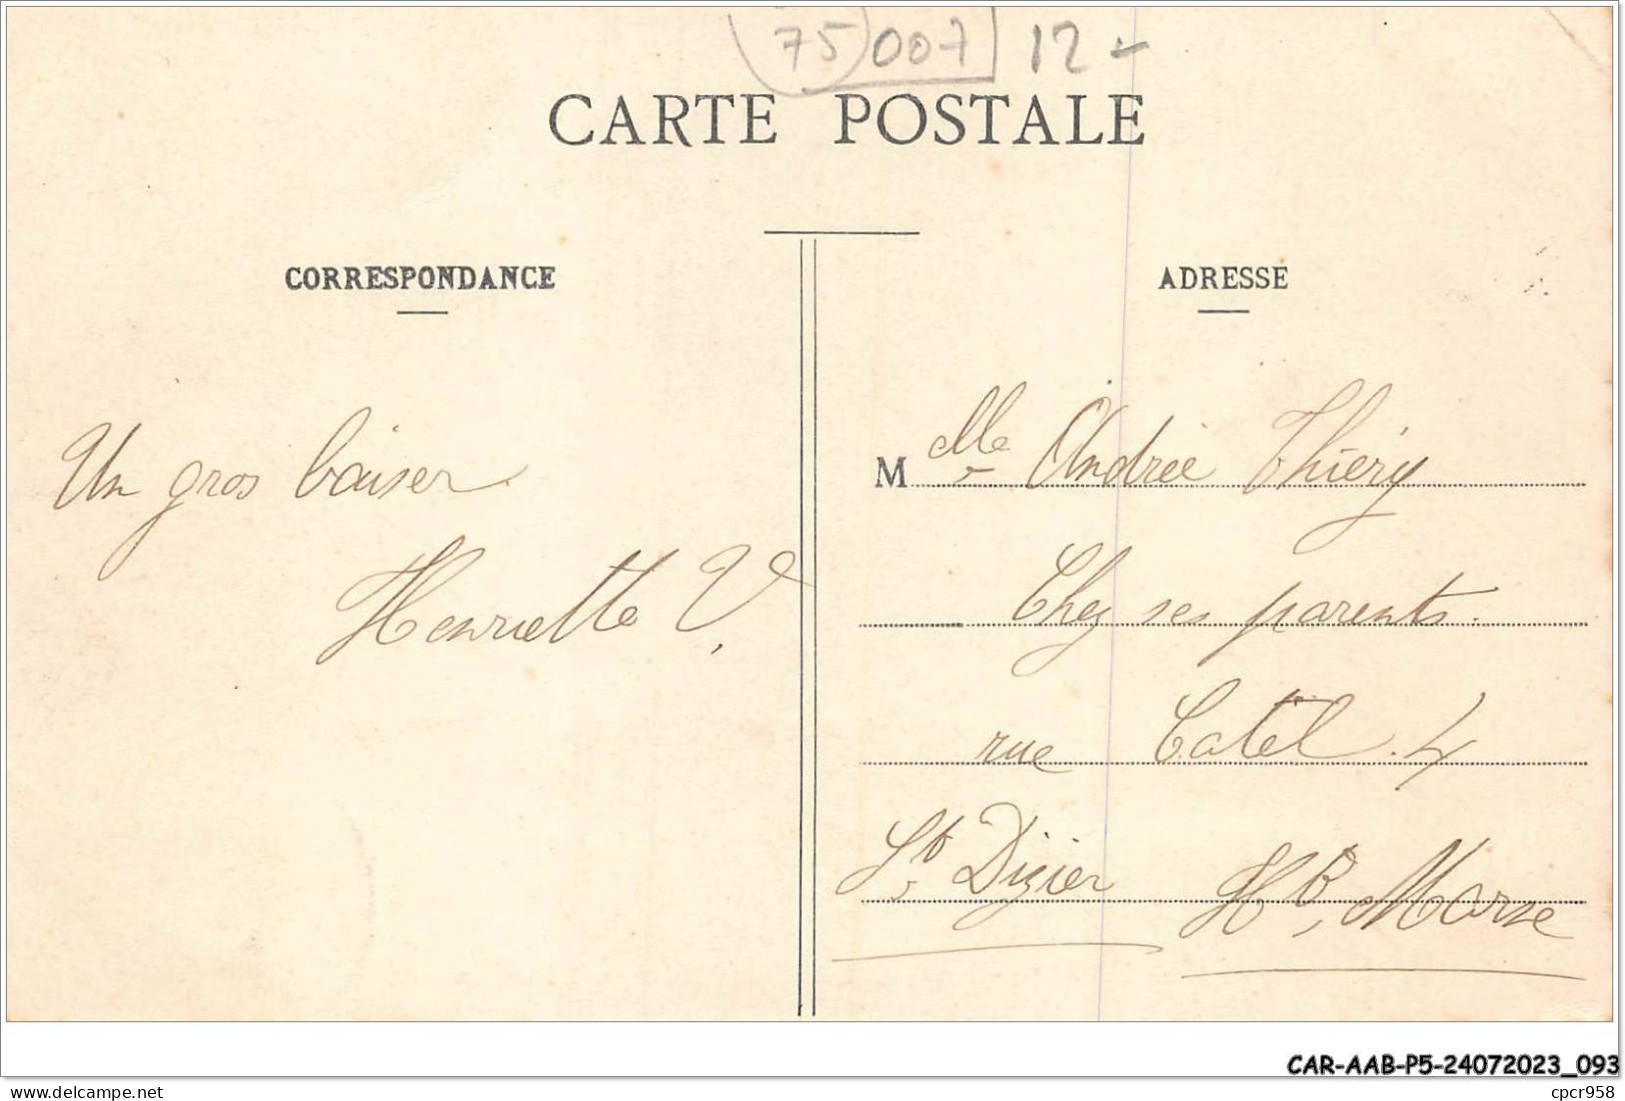 75 007 12-
CARTE POSTALE
CORRESPONDANCE
Un gros baiser.
Henriette V.
ADRESSE
M lle Andrée Thiéry
Chez ses parents.
rue Catel. 4
St Dizier Hte Marne
CAR-AAB-P5-24072023_093
www.delcampe.net
cpcr958